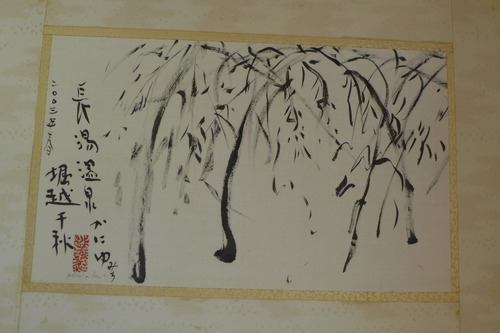 長湯温泉かにゆ
堀越千秋
二〇〇三年